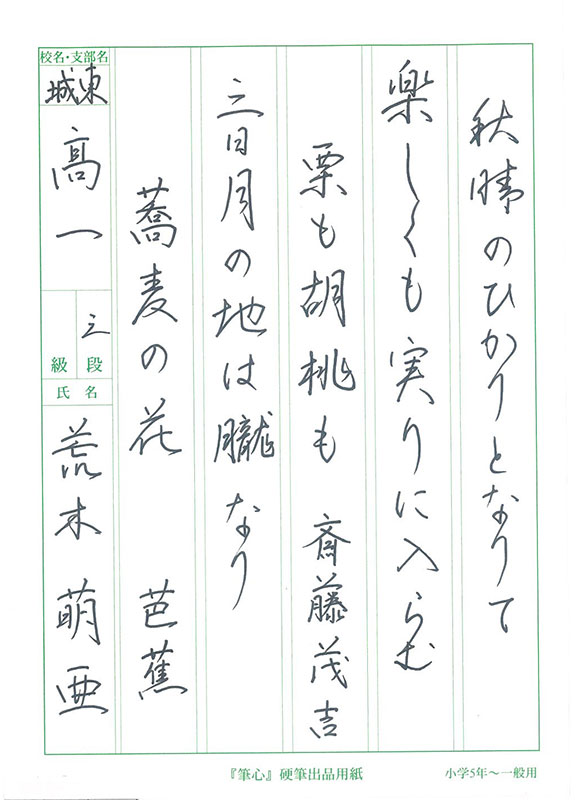 秋晴のひかりとなりて
楽しくも実りに入らむ
栗も胡桃も 斎藤茂吉
三日月の地は朧なり
蕎麦の花 芭蕉
校名・支部名
城東
高一
三段
級
氏名
荒木 萌亜
『筆心』硬筆出品用紙
小学5年〜一般用